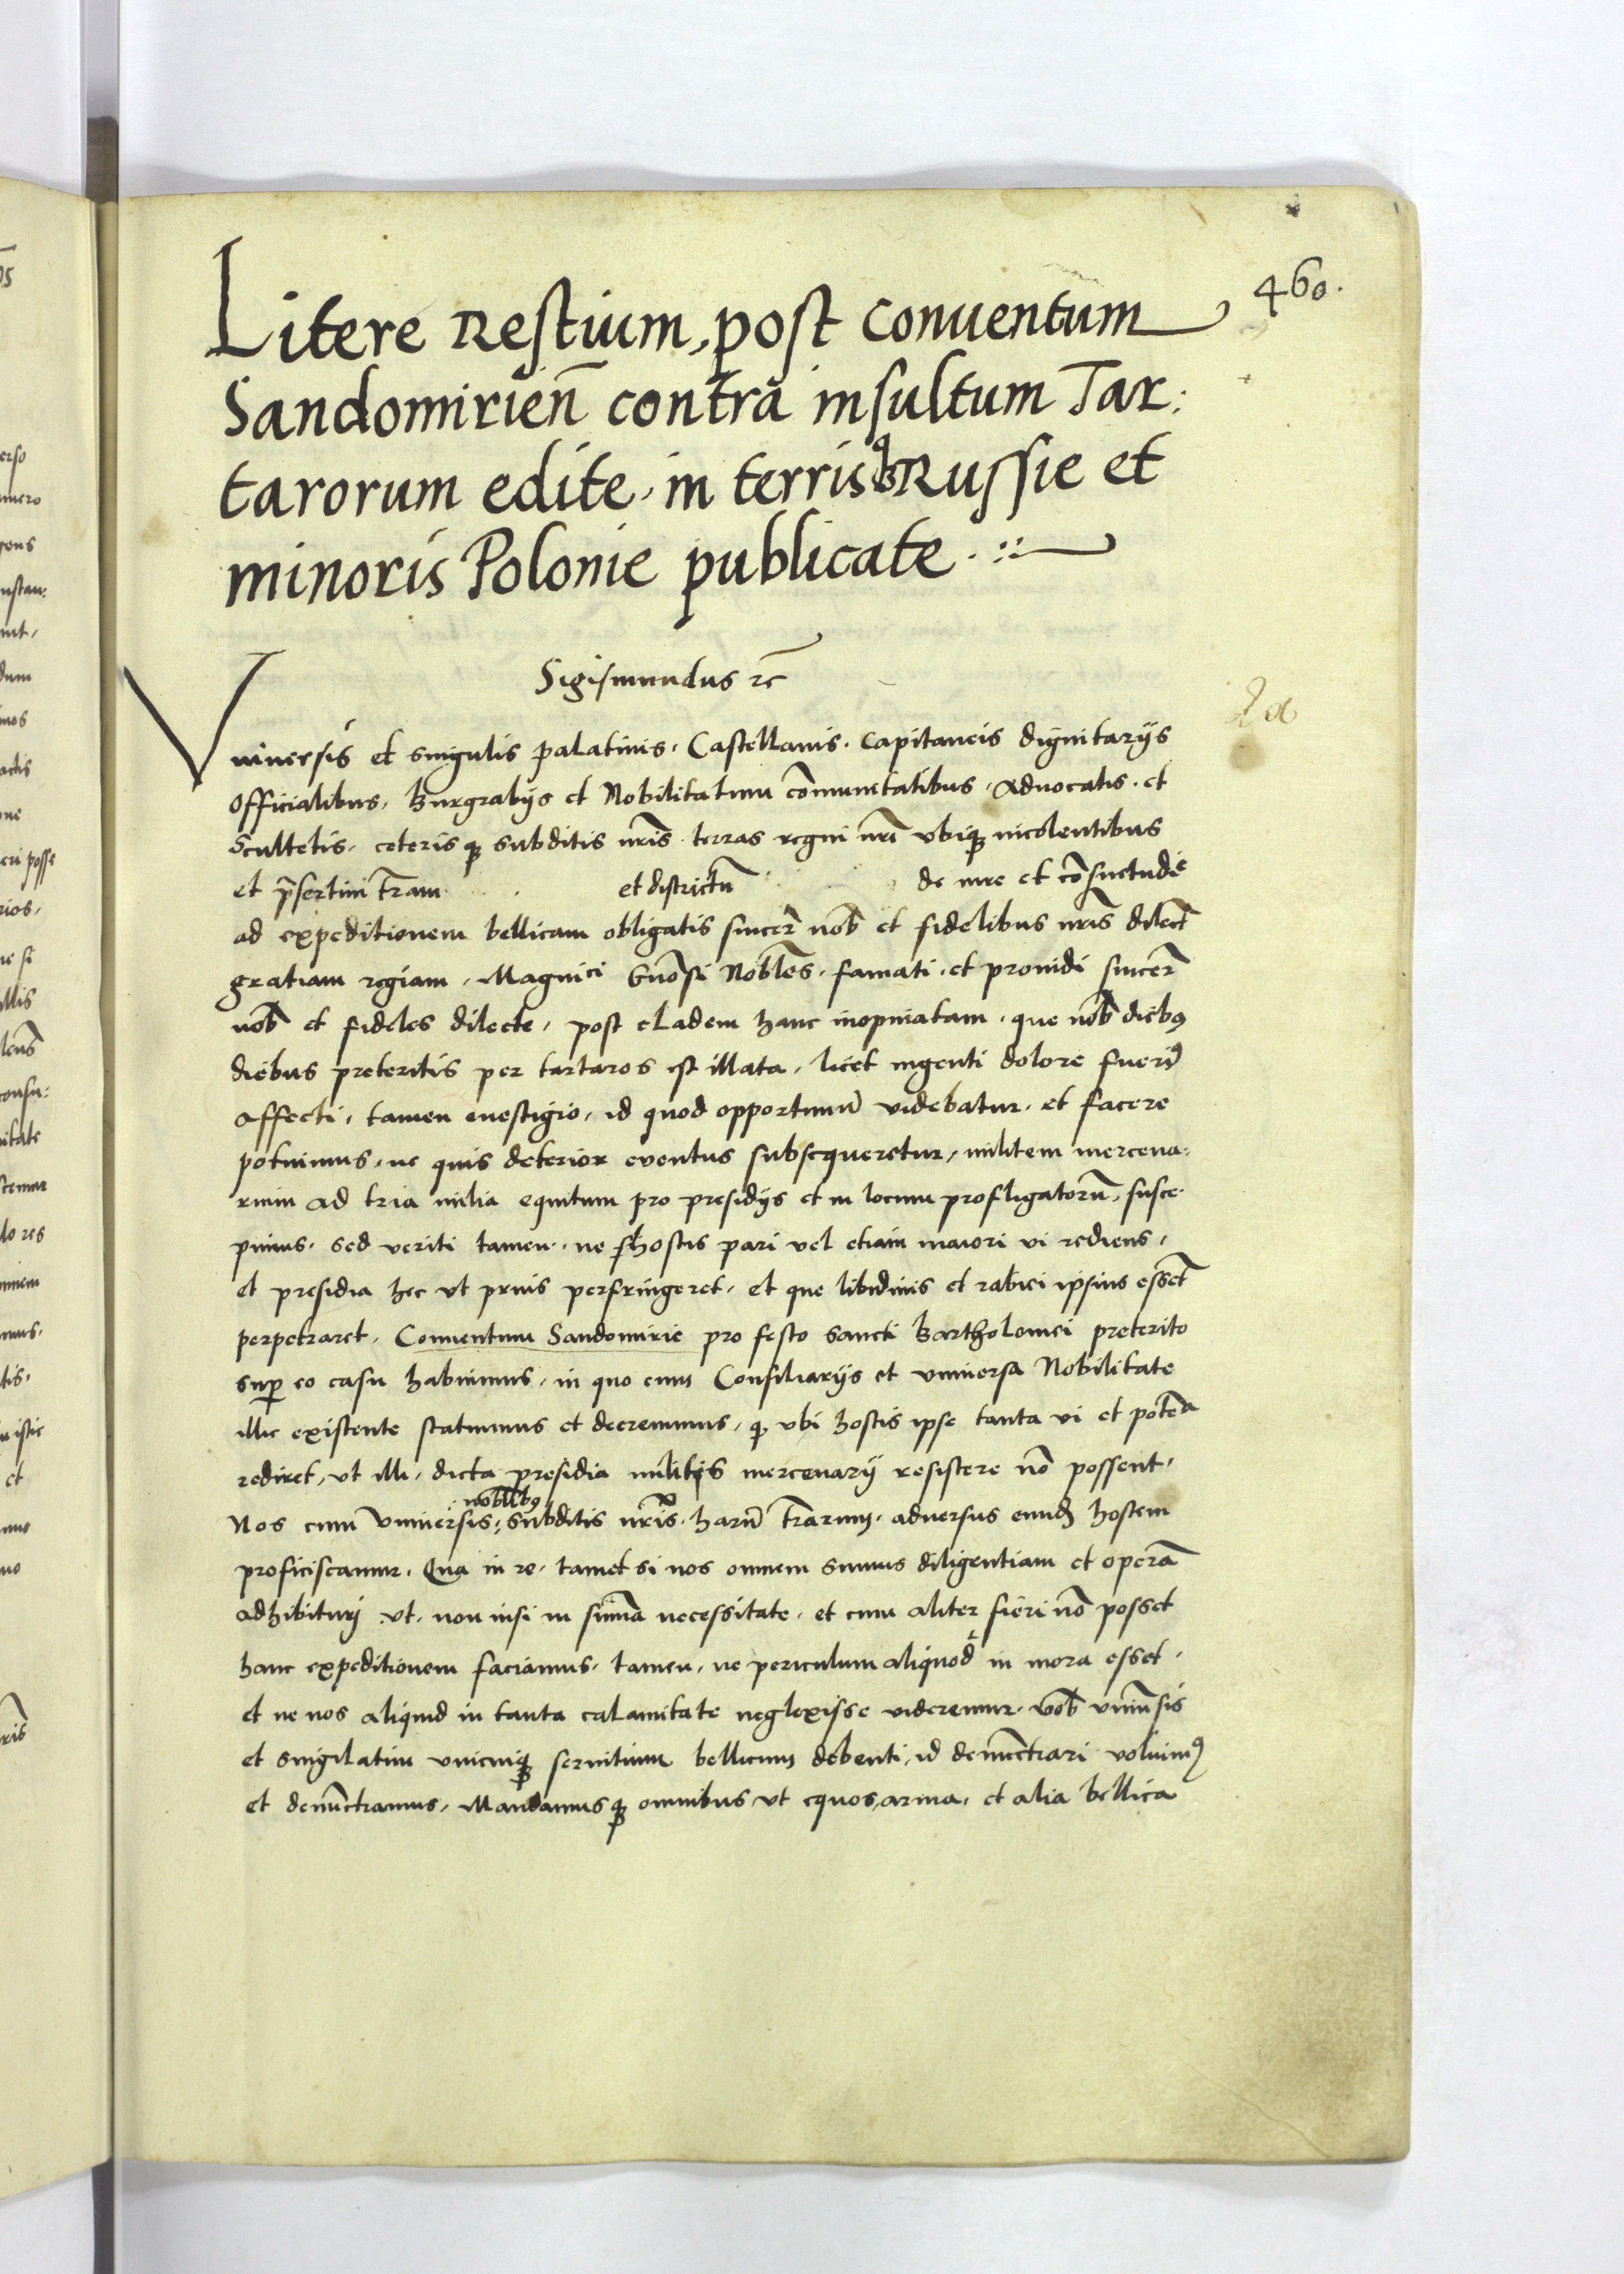 460.
Litere Restium, post conuentum
Sandomirieñ contra insultum Tar:
tarorum edite, in terris Russie et
minoris Polonie publicate.
Sigismundus rc̃
Vniuersis et singulis palatinis, Castellanis, Capitaneis dignitarijs
Officialibus, Burgrabijs et Nobilitatum cõmunitatibus, Aduocatis, et
Scultetis, ceterisqꝫ subditis nr̃is terras regni nr̃i vbiqꝫ incolentibus
et p̃sertim tr̃am et districtũ de iure et cõsuetudĩe
ad expeditionem bellicam obligatis sincer̃ nob̃ et fidelibus nr̃is dilect̃
gratiam regiam, Magnici Gnõsi Nobles̃, famati, et prouidi sincer̃
nob̃ et fideles dilecte, post cladem hanc inopinatam, que nob̃ diebꝰ
diebus preteritis per tartaros est illata, licet ingenti dolore fuerimꝰ
affecti, tamen euestigio, id quod opportunũ videbatur, et facere
potuimus, ne quis deterior euentus subsequeretur, militem mercena:
rium ad tria milia equitum pro presidijs et in locum profligatorũ, susce-
pimus, sed veriti tamen, ne hostis pari vel etiam maiori vi rediens,
et presidia hec vt prius perfringeret, et que libidinis et rabiei ipsius esset̃
perpetraret, Conuentum Sandomirie pro festo sancti Bartholomei preterito
suꝑ eo casu habuimus, in quo cum Consiliarijs et vniuersa Nobilitate
illic existente statuimus et decreuimus, ꝙ vbi hostis ipse tanta vi et potẽa
rediret, vt illi, dicta presidia militis mercenarij resistere nõ possent,
noblibꝰ
Nos cum vniuersis, subditis nr̃is, harũ tr̃arum, aduersus eund̃ hostem
proficiscamur, Qua in re, tamet si nos omnem sumus diligentiam et operã
adhibituri vt, non nisi in sum̃a necessitate, et cum aliter fieri nõ posset
hanc expeditionem faciamus, tamen, ne periculum aliquod in mora esset,
et ne nos aliquid in tanta calamitate neglexisse videremur, vob̃ vniũsis
et singilatim vnicuiqꝫ seruitium bellicum debenti, id denunctiari voluimꝰ
et denunctiamus, Mandamusqꝫ omnibus, vt equos, arma, et alia bellica